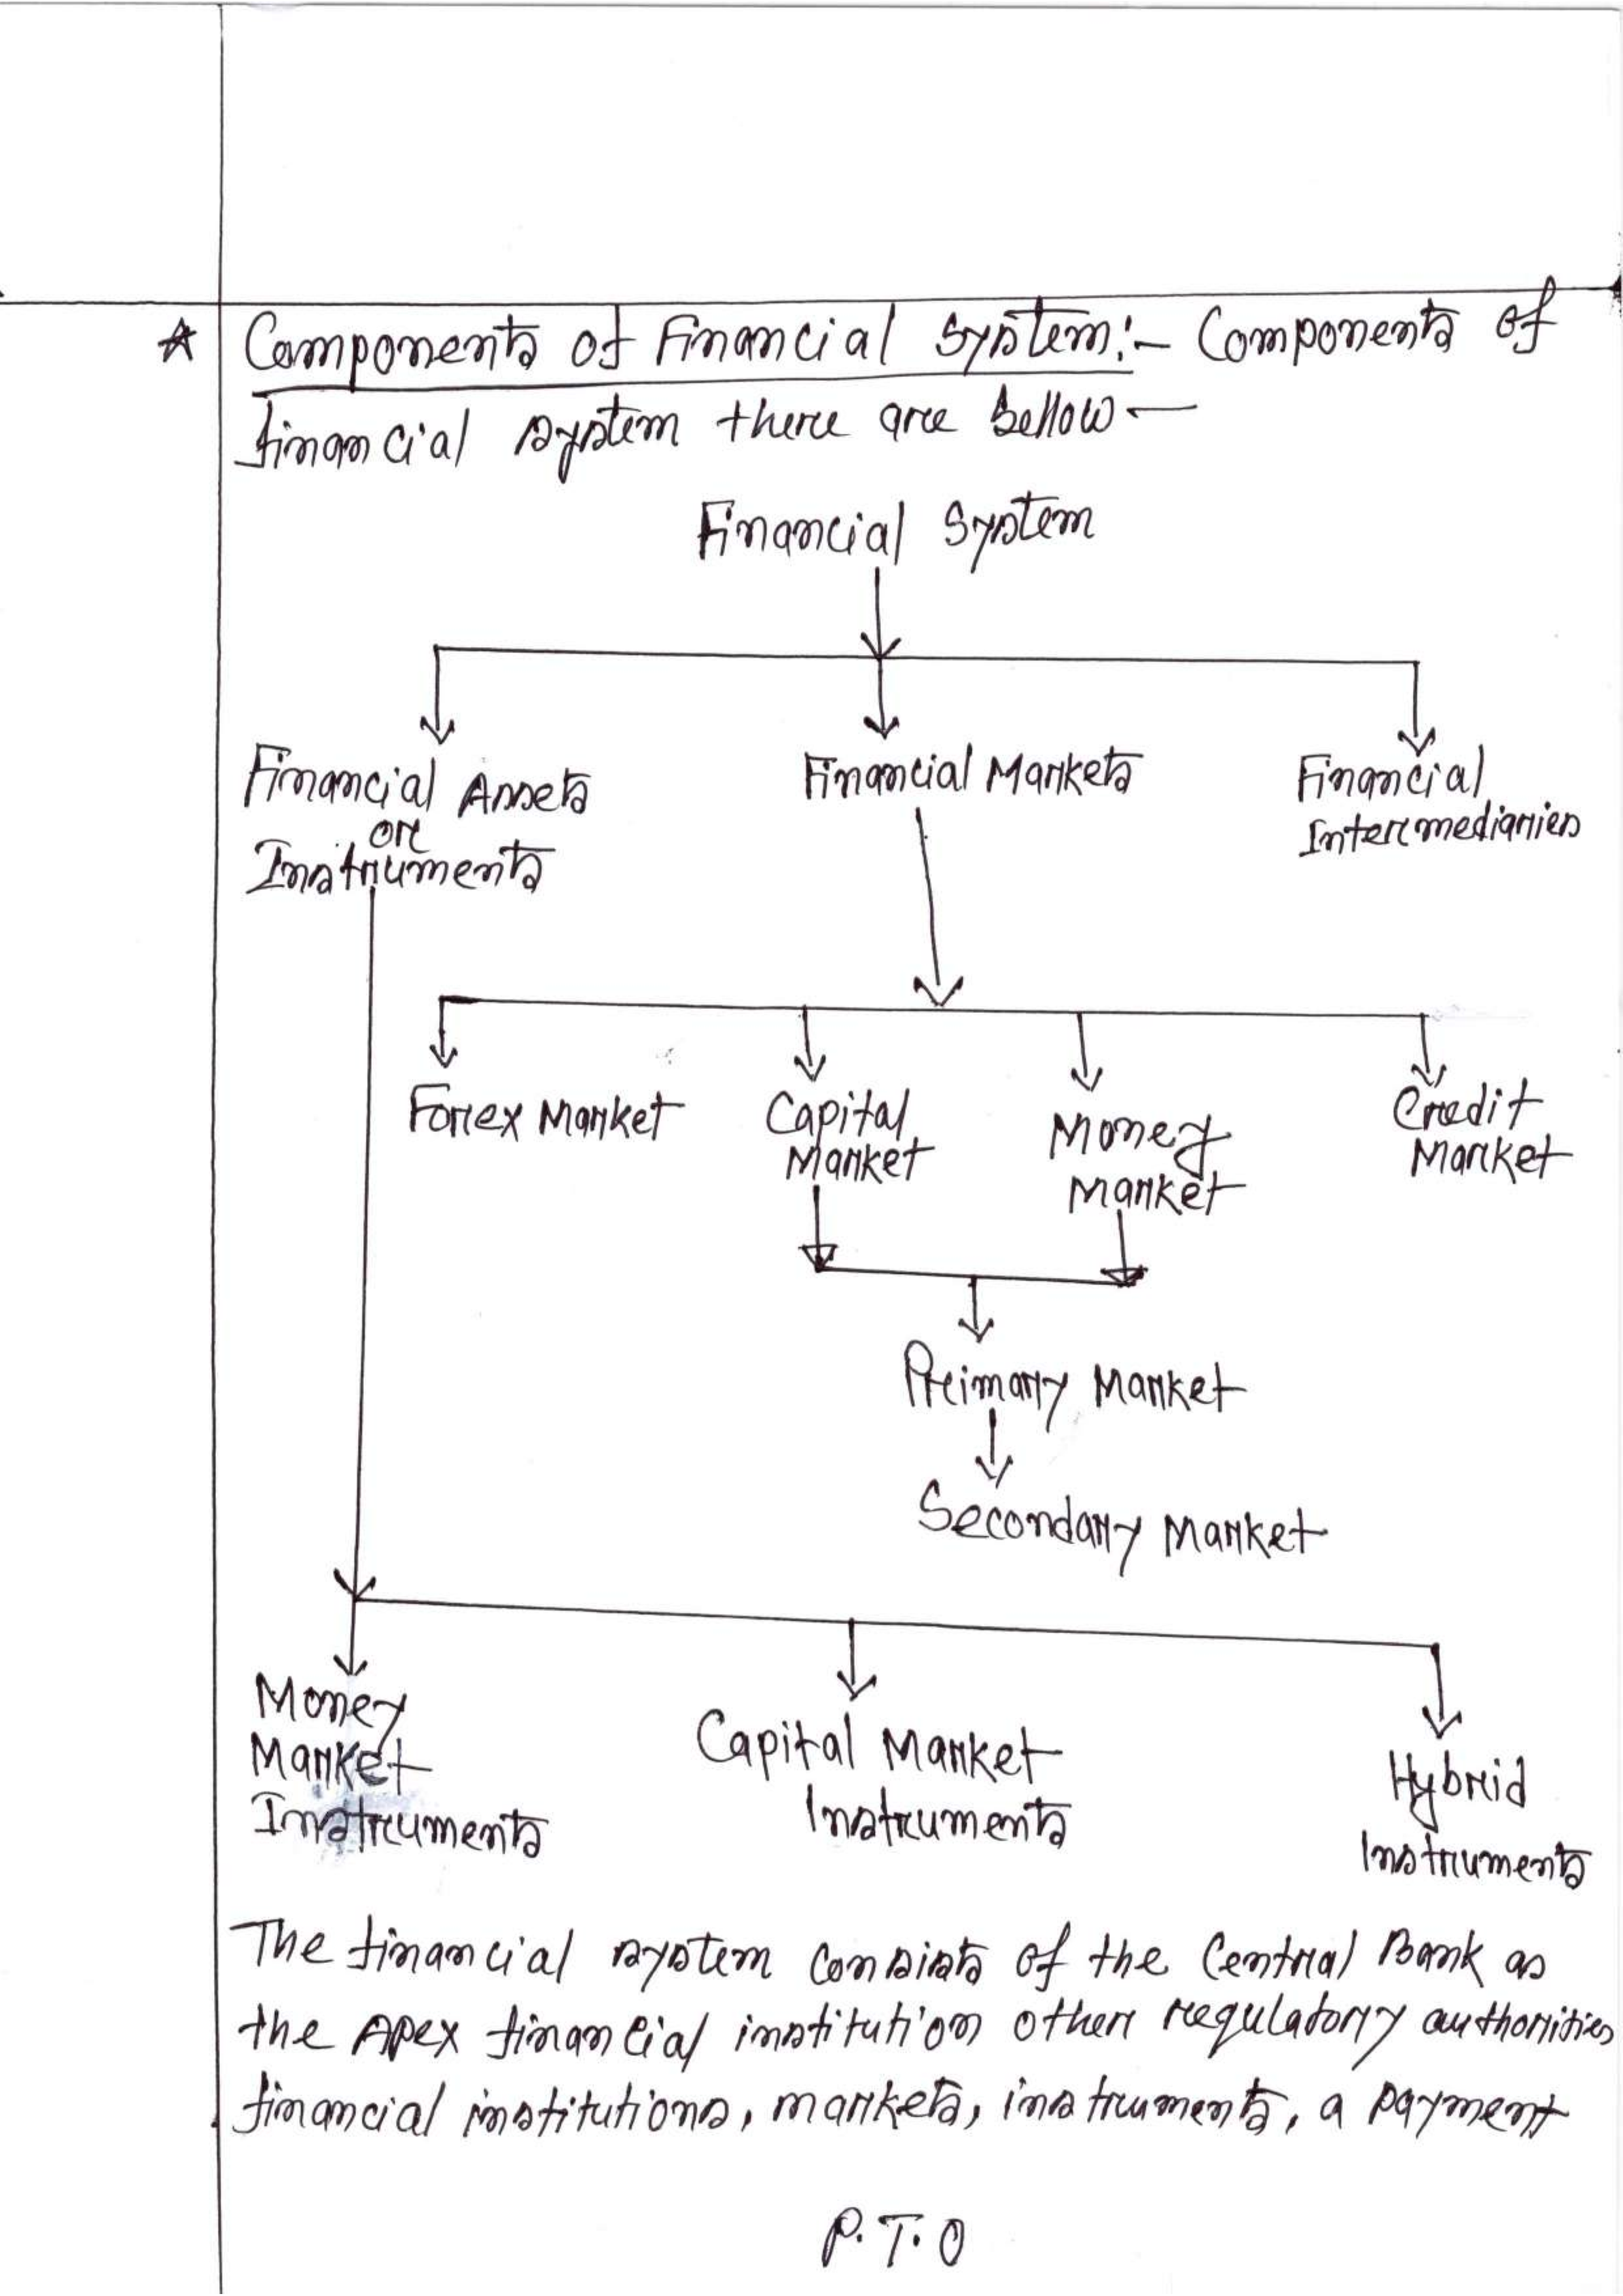 * Components of Financial System:- Components of
financial system there are bellow —
Financial System
Financial Assets
or
Instruments
Financial Markets
Financial
Intermediaries
Forex Market
Capital
Market
Money
Market
Credit
Market
Primary Market
Secondary Market
Money
Market
Instruments
Capital Market
Instruments
Hybrid
Instruments
The financial system consists of the Central Bank as
the Apex financial institution other regulatory authorities
financial institutions, markets, instruments, a payment
P.T.O